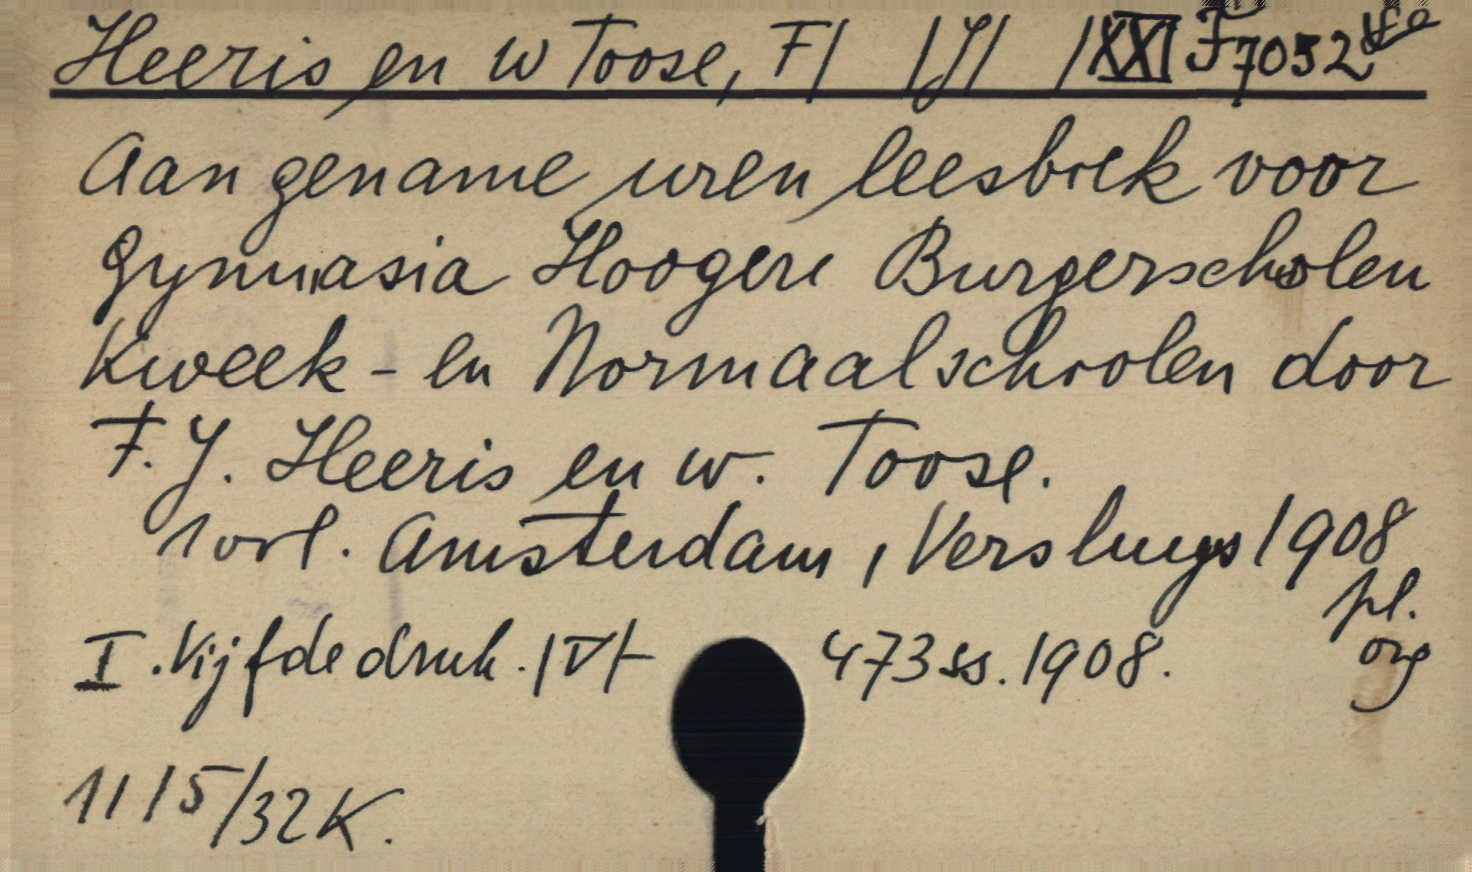 Heeris en w Toose, F/ /J/ /XXI F7052
Aangename uren leesboek voor
Gymnasia Hoogere Burgerscholen
Kweek- en Normaalschoolen door
F. J. Heeris en w. Toose.
1 vol. Amsterdam, Versluys 1908
pl.
I. Vijfde druk. /VI- 473 ss. 1908. org
11/5/32 K.